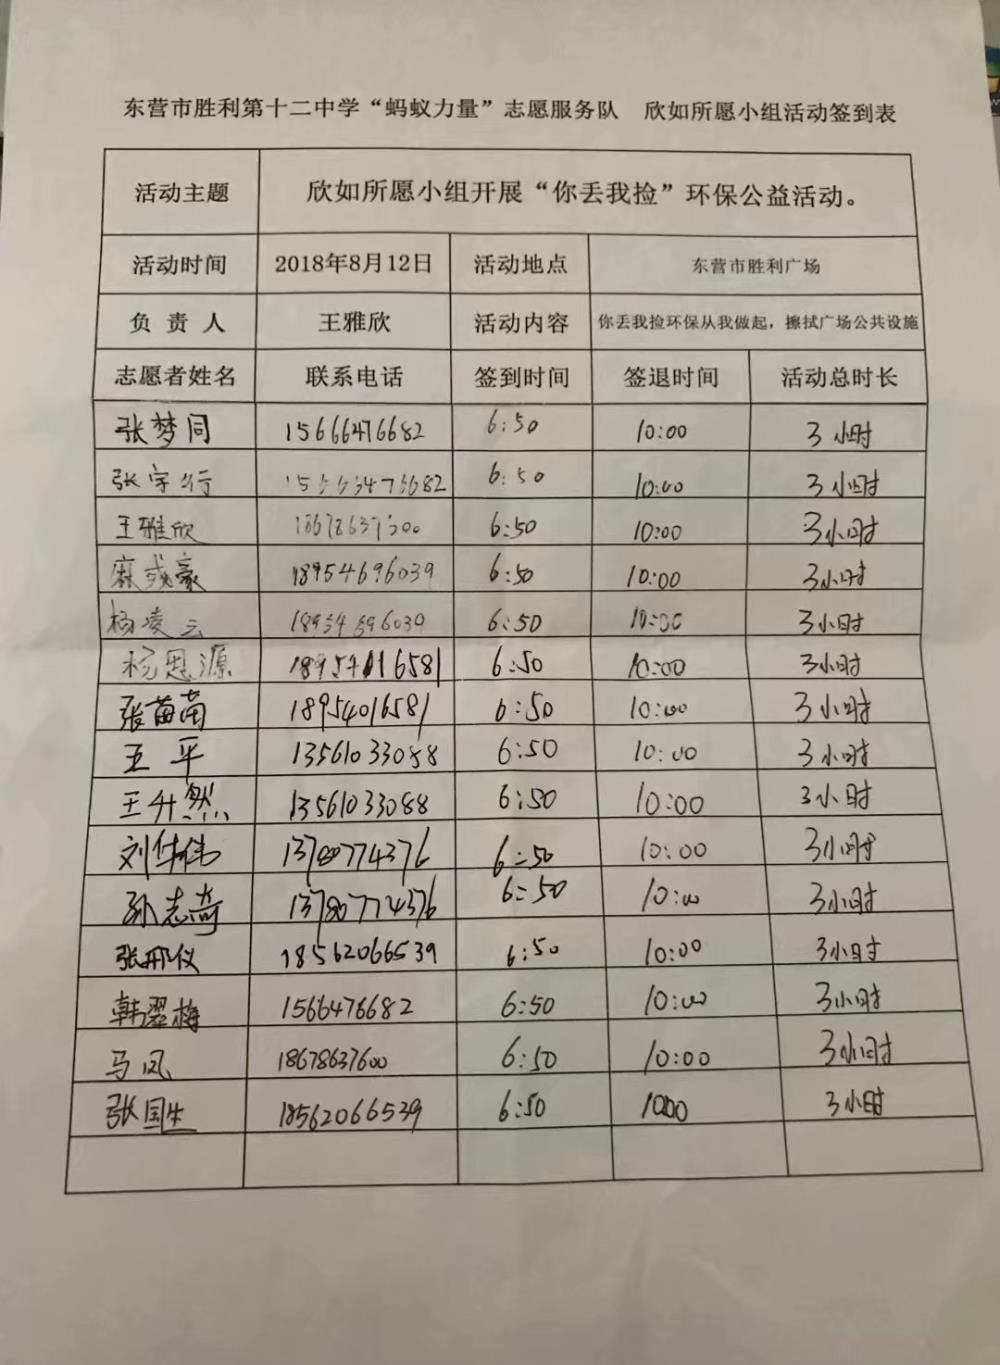 东营市胜利第十二中学“蚂蚁力量”志愿服务队 欣如所愿小组活动签到表
活动主题 欣如所愿小组开展“你丢我捡”环保公益活动。
活动时间 2018年8月12日 活动地点 东营市胜利广场
负责人 王雅欣 活动内容 你丢我捡环保从我做起，擦拭广场公共设施
志愿者姓名 联系电话 签到时间 签退时间 活动总时长
张梦同 15666476682 6:50 10:00 3小时
张宇行 6:50 10:00 3小时
王雅欣 6:50 10:00 3小时
麻彧豪 18954696039 6:50 10:00 3小时
杨凌云 18954696039 6:50 10:00 3小时
杨恩源 18954016581 6:50 10:00 3小时
张苗苗 18954016581 6:50 10:00 3小时
王平 13561033088 6:50 10:00 3小时
王升然 13561033088 6:50 10:00 3小时
刘华伟 13780774376 6:50 10:00 3小时
孙志奇 13780774376 6:50 10:00 3小时
张邢仪 18562066539 6:50 10:00 3小时
韩翠梅 1566476682 6:50 10:00 3小时
马凤 18678637600 6:50 10:00 3小时
张国生 18562066539 6:50 1000 3小时